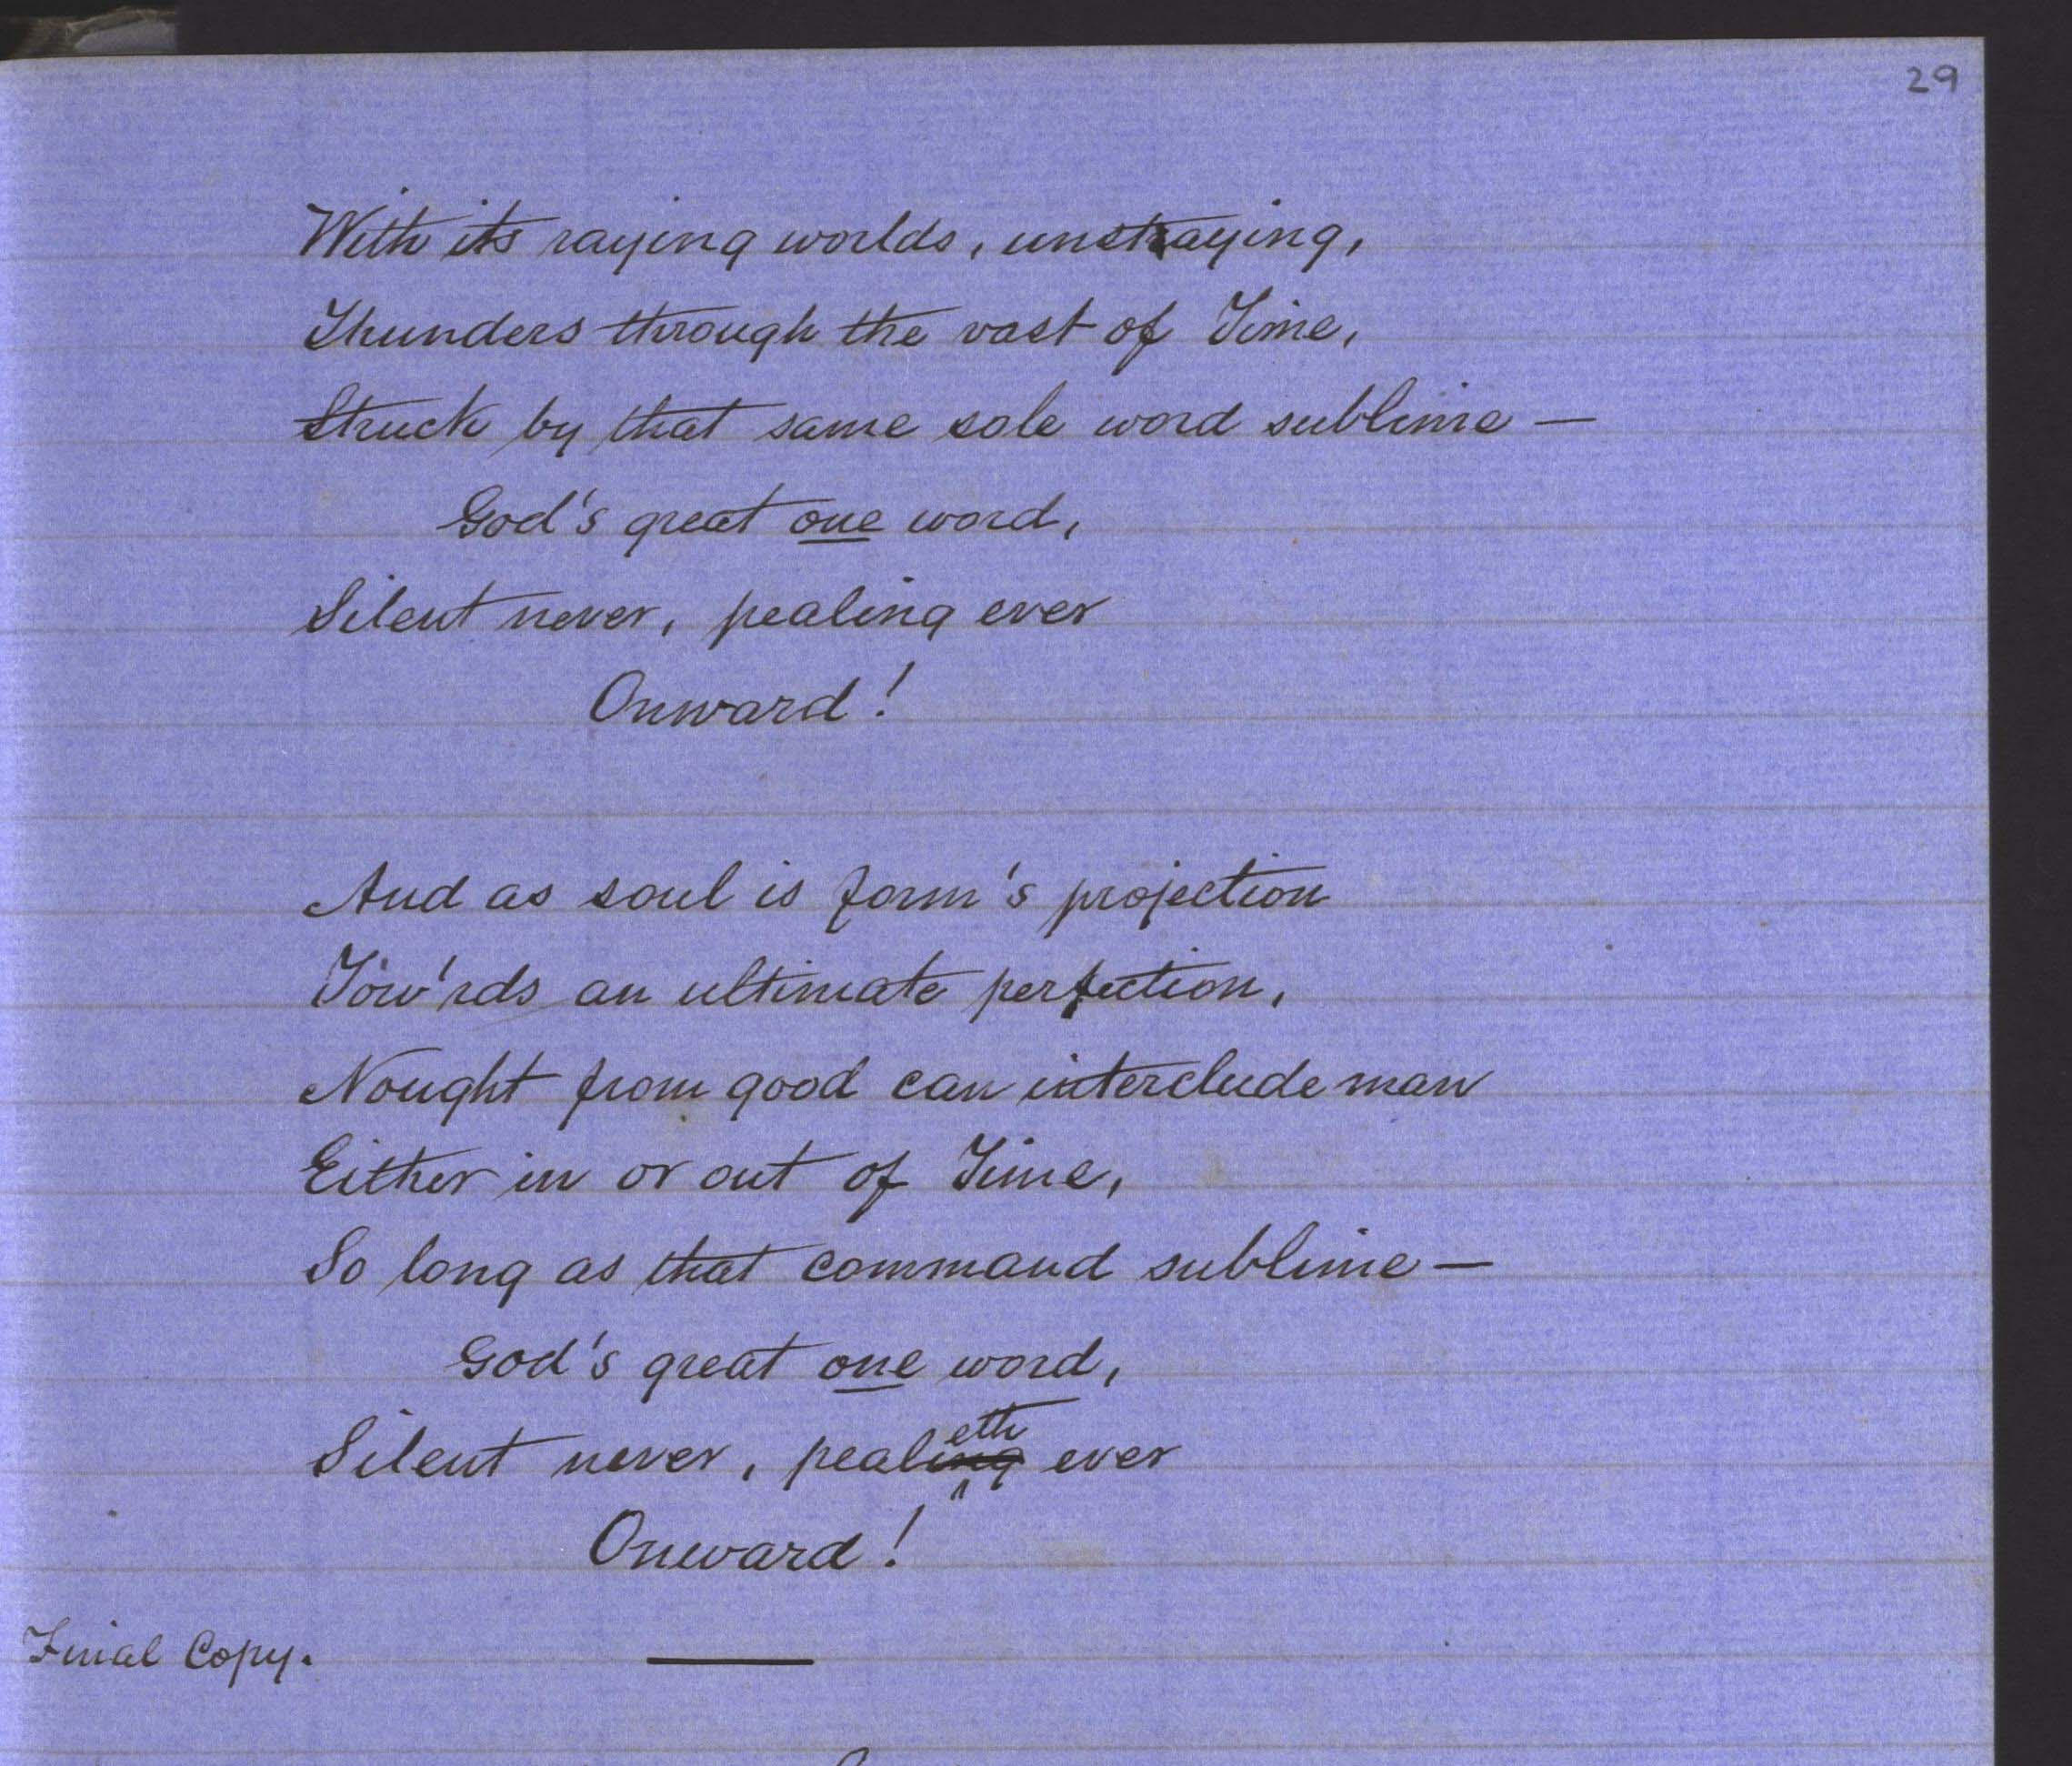 29
With its raying worlds, unstraying,
Thunders through the vast of Time,
Struck by that same sole word sublime —
God's great one word,
Silent never, pealing ever
Onward!
And as soul is form's projection
Tow'rds an ultimate perfection,
Nought from good can interclude man
Either in or out of Time,
So long as that command sublime —
God's great one word,
eth
Silent never, pealing ever
Onward!
Final Copy.